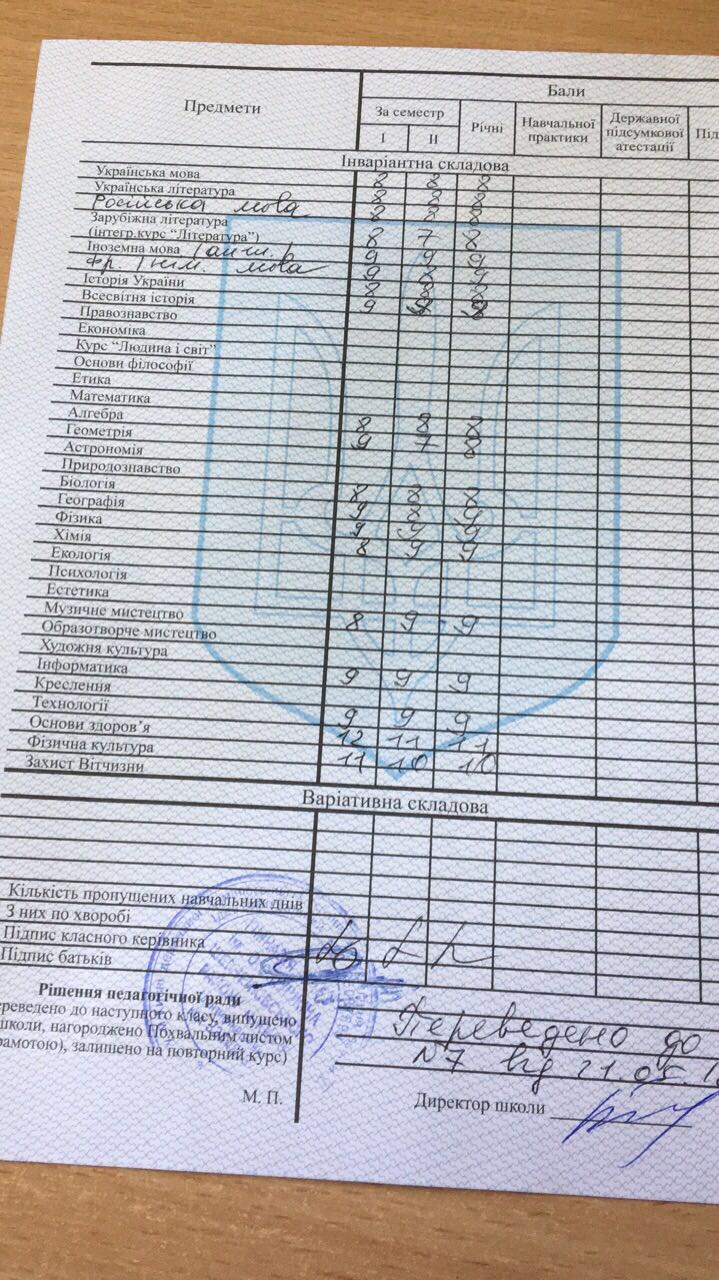 Предмети
Бали
За семестр
I II
Річні
Навчальної практики
Державної підсумкової атестації
Під
Інваріантна складова
Українська мова 8 8 8
Українська література 8 8 8
Російська мова 8 8 8
Зарубіжна література
(інтегр.курс “Література”) 8 7 8
Іноземна мова (англ.) 9 9 9
Фр. / нім. мова 9 8 9
Історія України 8 8 8
Всесвітня історія 9
Правознавство
Економіка
Курс “Людина і світ”
Основи філософії
Етика
Математика
Алгебра 8 8 8
Геометрія 9 7 8
Астрономія
Природознавство
Біологія 8 8 8
Географія 9 8 9
Фізика 9 9 9
Хімія 8 9 9
Екологія
Психологія
Естетика
Музичне мистецтво 8 9 9
Образотворче мистецтво
Художня культура
Інформатика 9 9 9
Креслення
Технології 9 9 9
Основи здоров’я 12 11 11
Фізична культура 11 10 10
Захист Вітчизни
Варіативна складова
Кількість пропущених навчальних днів
З них по хворобі
Підпис класного керівника
Підпис батьків
Рішення педагогічної ради
ереведено до наступного класу, випущено
школи, нагороджено Похвальним листом
рамотою), залишено на повторний курс)
М. П.
Переведено до
N7 від 21.05.1
Директор школи